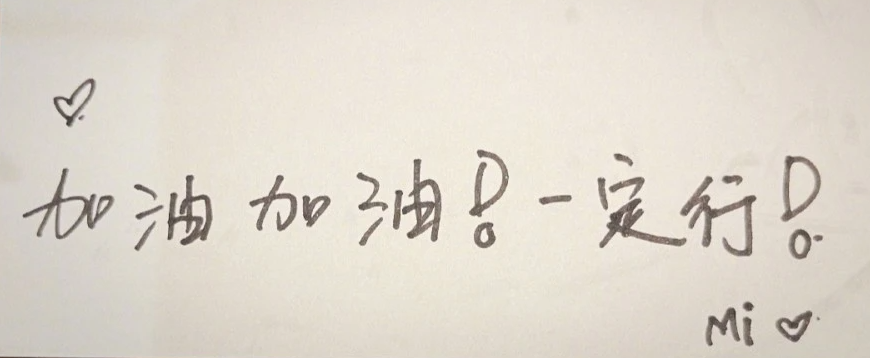 ♡
加油加油!一定行!
Mi♡